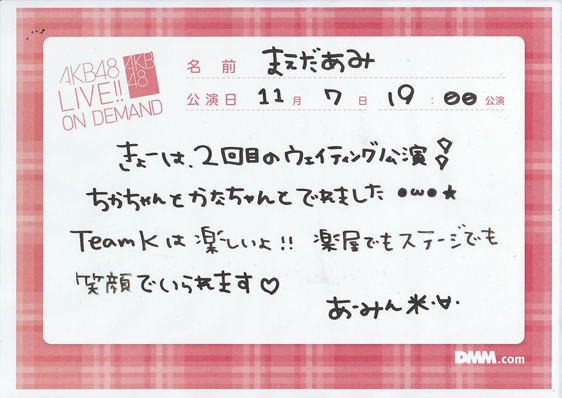 AKB48
LIVE!!
ON DEMAND
AKB
48
名前 まえだあみ
公演日 11月 7日 19:00公演
きょーは、2回目のウェイティング公演!!
ちかちゃんとかなちゃんとでれました●ω●★
TeamKは楽しいよ!! 楽屋でもステージでも
笑顔でいられます♡
あーみん米・∀・
DMM.com